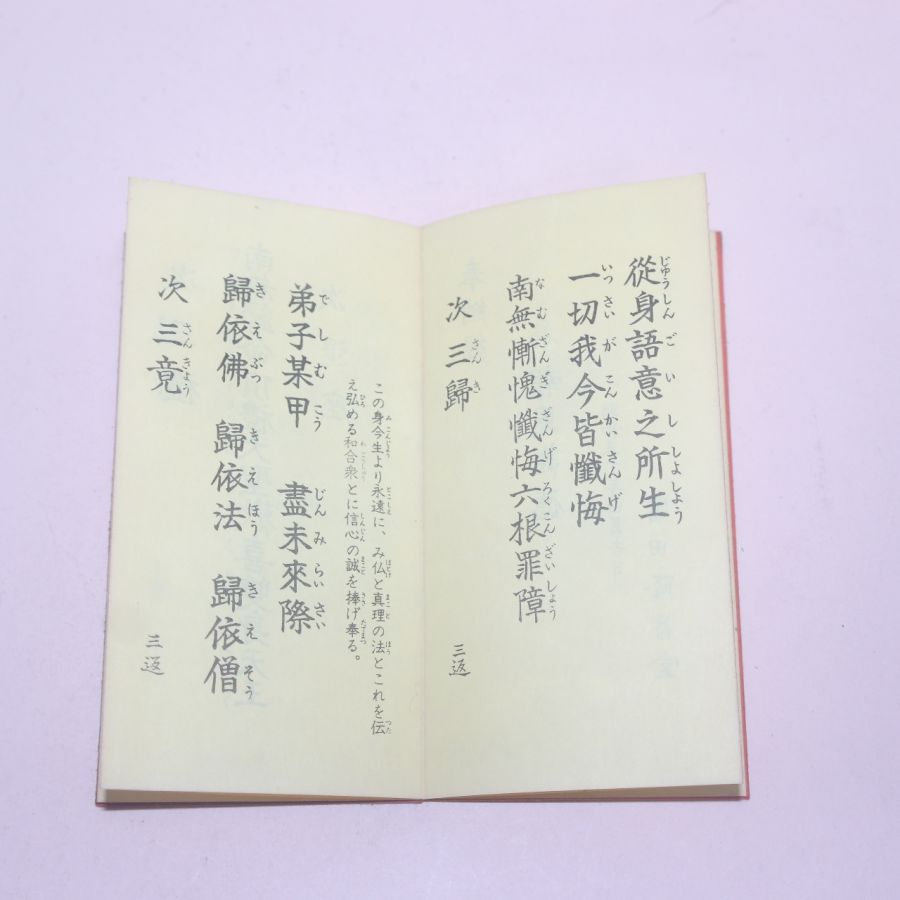 從身語意之所生
一切我今皆懺悔
南無慚愧懺悔六根罪障
次三歸 三返
この身今生より永遠に、み仏と真理の法とこれを伝
え弘める和合衆とに信心の誠を捧げ奉る。
弟子某甲 盡未來際
歸依佛 歸依法 歸依僧
次三竟 三返